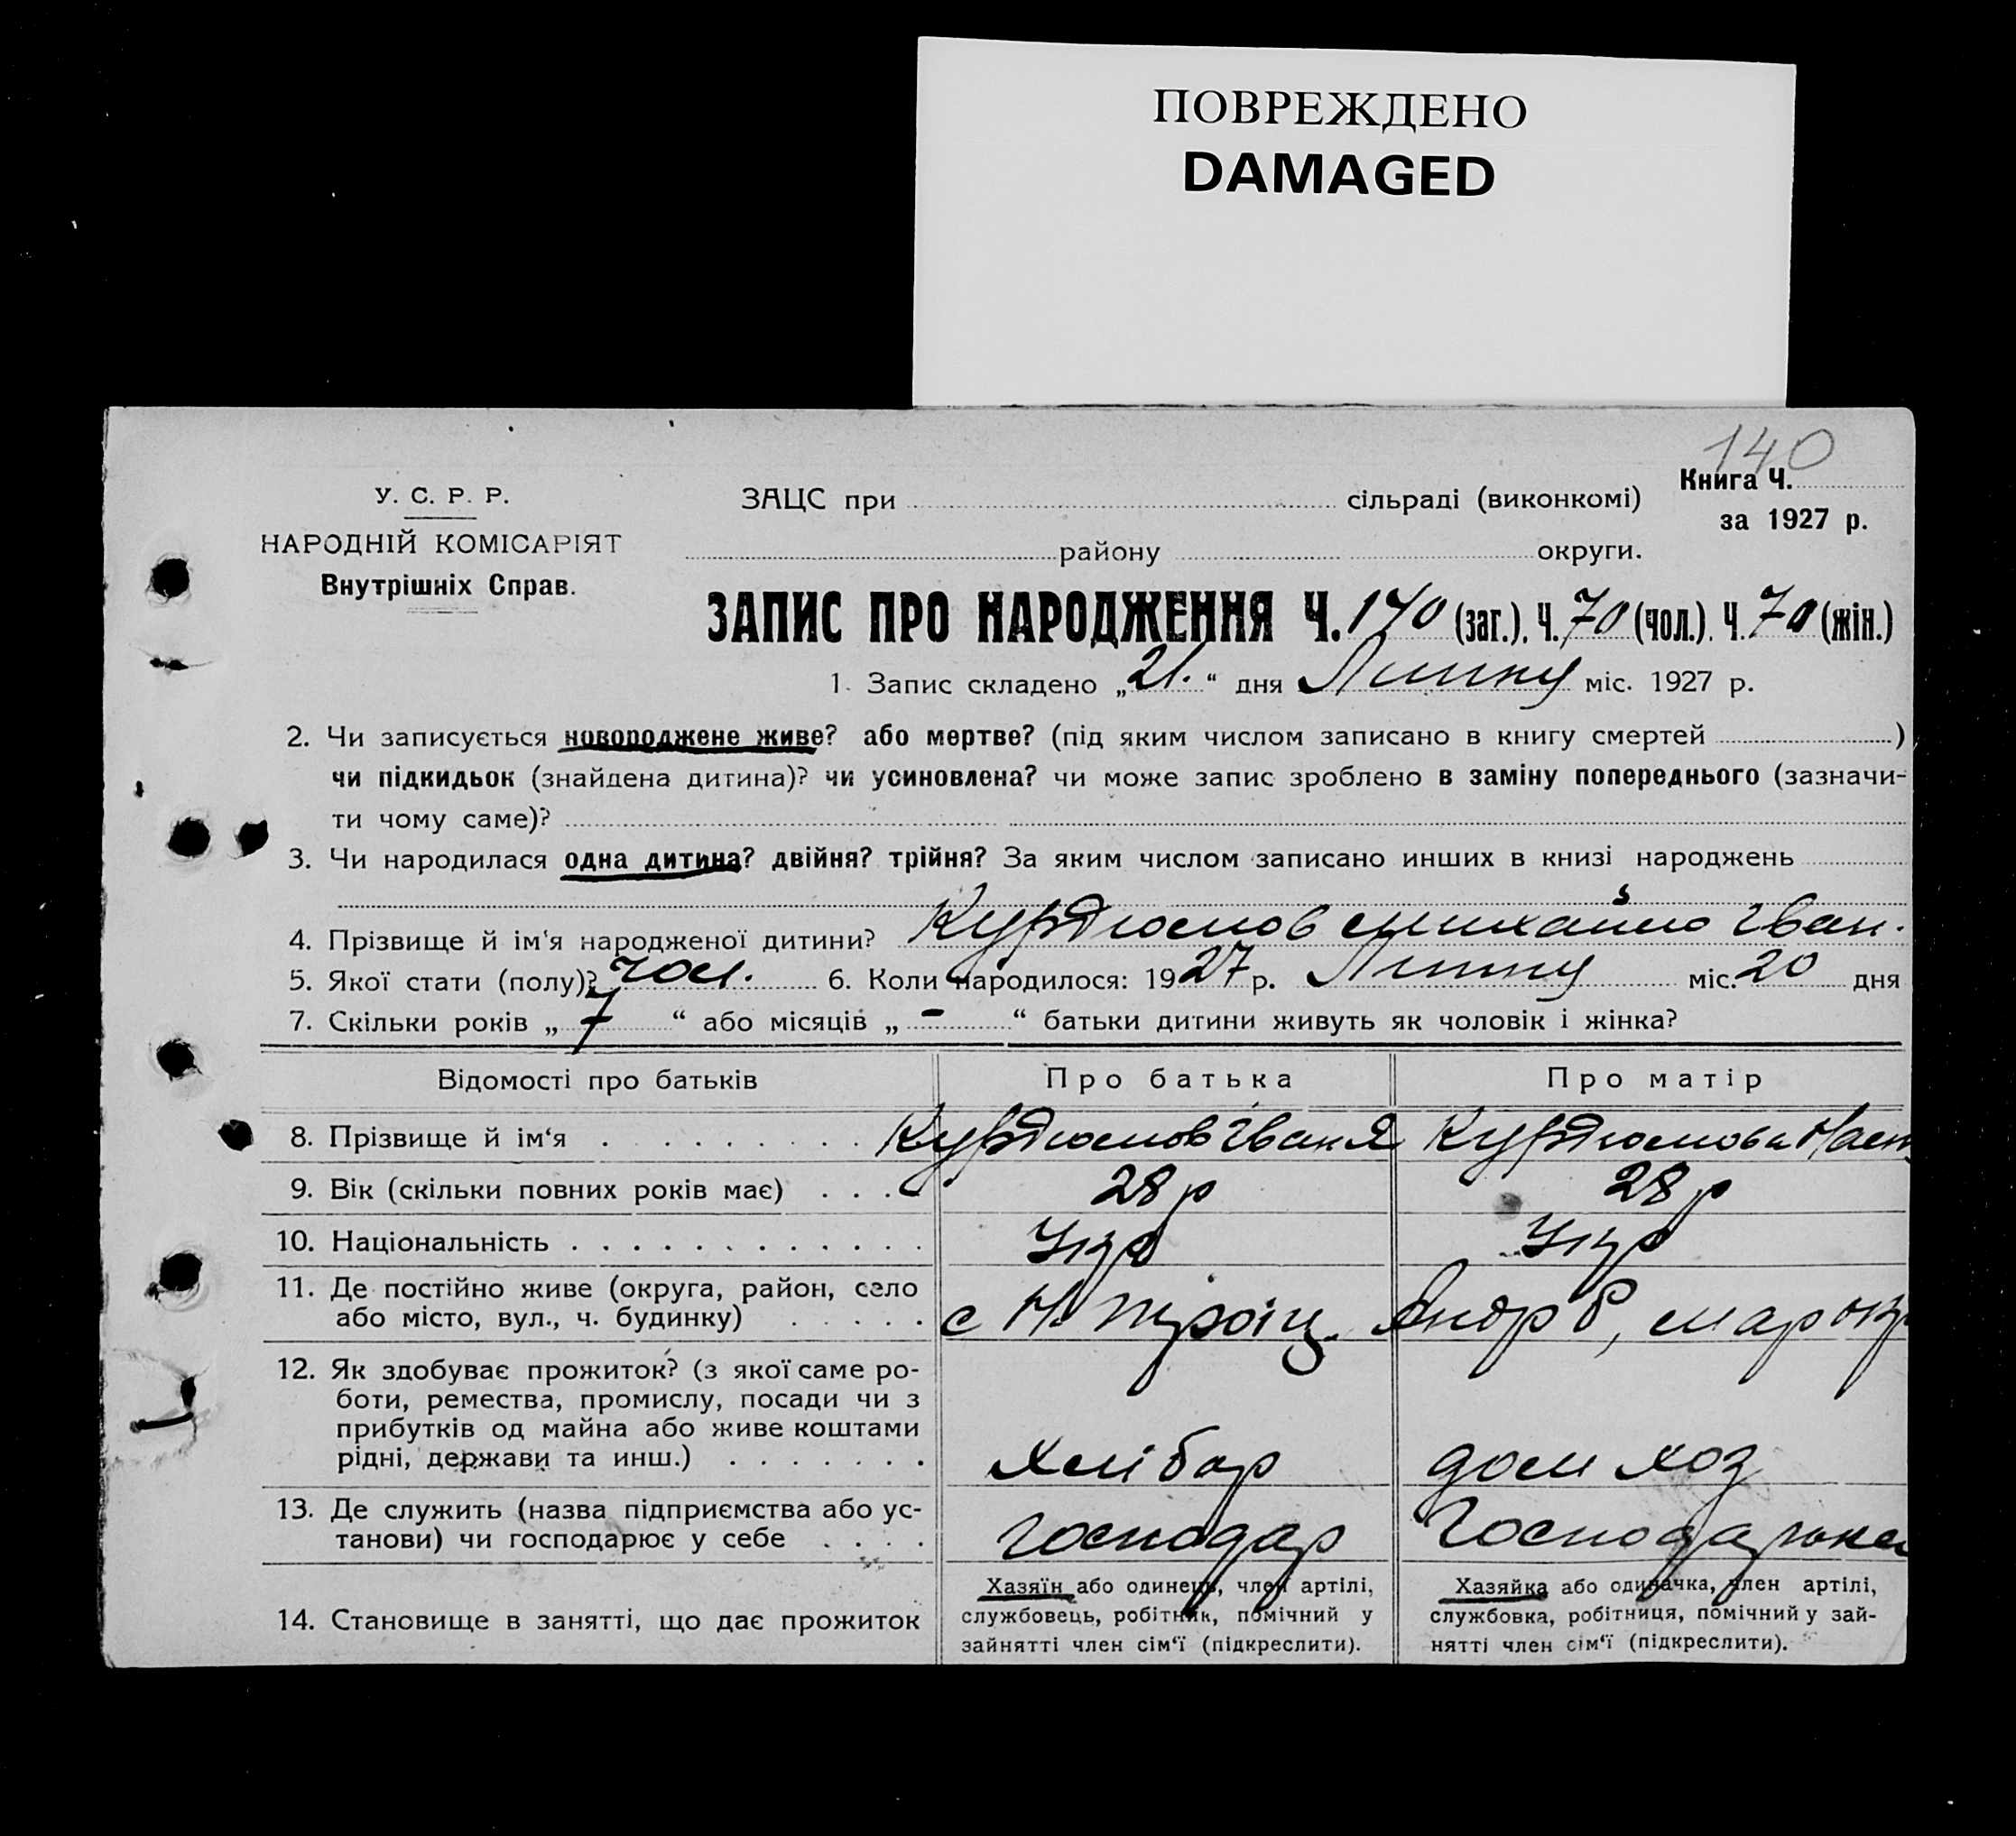 ПОВРЕЖДЕНО
DAMAGED
140
У. С. Р. Р.
НАРОДНІЙ КОМІСАРІЯТ
Внутрішніх Справ.
ЗАЦС при сільраді (виконкомі)
Книга Ч.
за 1927 р.
району округи.
ЗАПИС ПРО НАРОДЖЕННЯ Ч. 140 (заг.), Ч. 70 (чол.). Ч. 70 (жін.)
1. Запис складено „21.“ дня Липну міс. 1927 р.
2. Чи записується новороджене живе? або мертве? (під яким числом записано в книгу смертей )
чи підкидьок (знайдена дитина)? чи усиновлена? чи може запис зроблено в заміну попереднього (зазначи-
ти чому саме)?
3. Чи народилася одна дитина? двійня? трійня? За яким числом записано инших в книзі народжень
4. Прізвище й ім'я народженої дитини? Курдюмов Михайло Іван.
5. Якої стати (полу)? чол. 6. Коли народилося: 1927 р. Липну міс. 20 дня
7. Скільки років „7“ або місяців „-“ батьки дитини живуть як чоловік і жінка?
Відомості про батьків Про батька Про матір
8. Прізвище й ім‘я Курдюмов Іван Я Курдюмова Наст
9. Вік (скільки повних років має) 28 р 28 р
10. Національність Укр Укр
11. Де постійно живе (округа, район, село
або місто, вул., ч. будинку) с Н. Троіц. Андр Р, Мар окр
12. Як здобуває прожиток? (з якої саме ро-
боти, ремества, промислу, посади чи з
прибутків од майна або живе коштами
рідні, держави та инш.) Хлібор дом хоз
13. Де служить (назва підприємства або ус-
танови) чи господарює у себе господар Господарька
14. Становище в занятті, що дає прожиток
Хазяїн або одинець, член артілі,
службовець, робітник, помічний у
зайнятті член сім‘ї (підкреслити).
Хазяйка або одиначка, член артілі,
службовка, робітниця, помічний у зай-
нятті член сім‘ї (підкреслити).